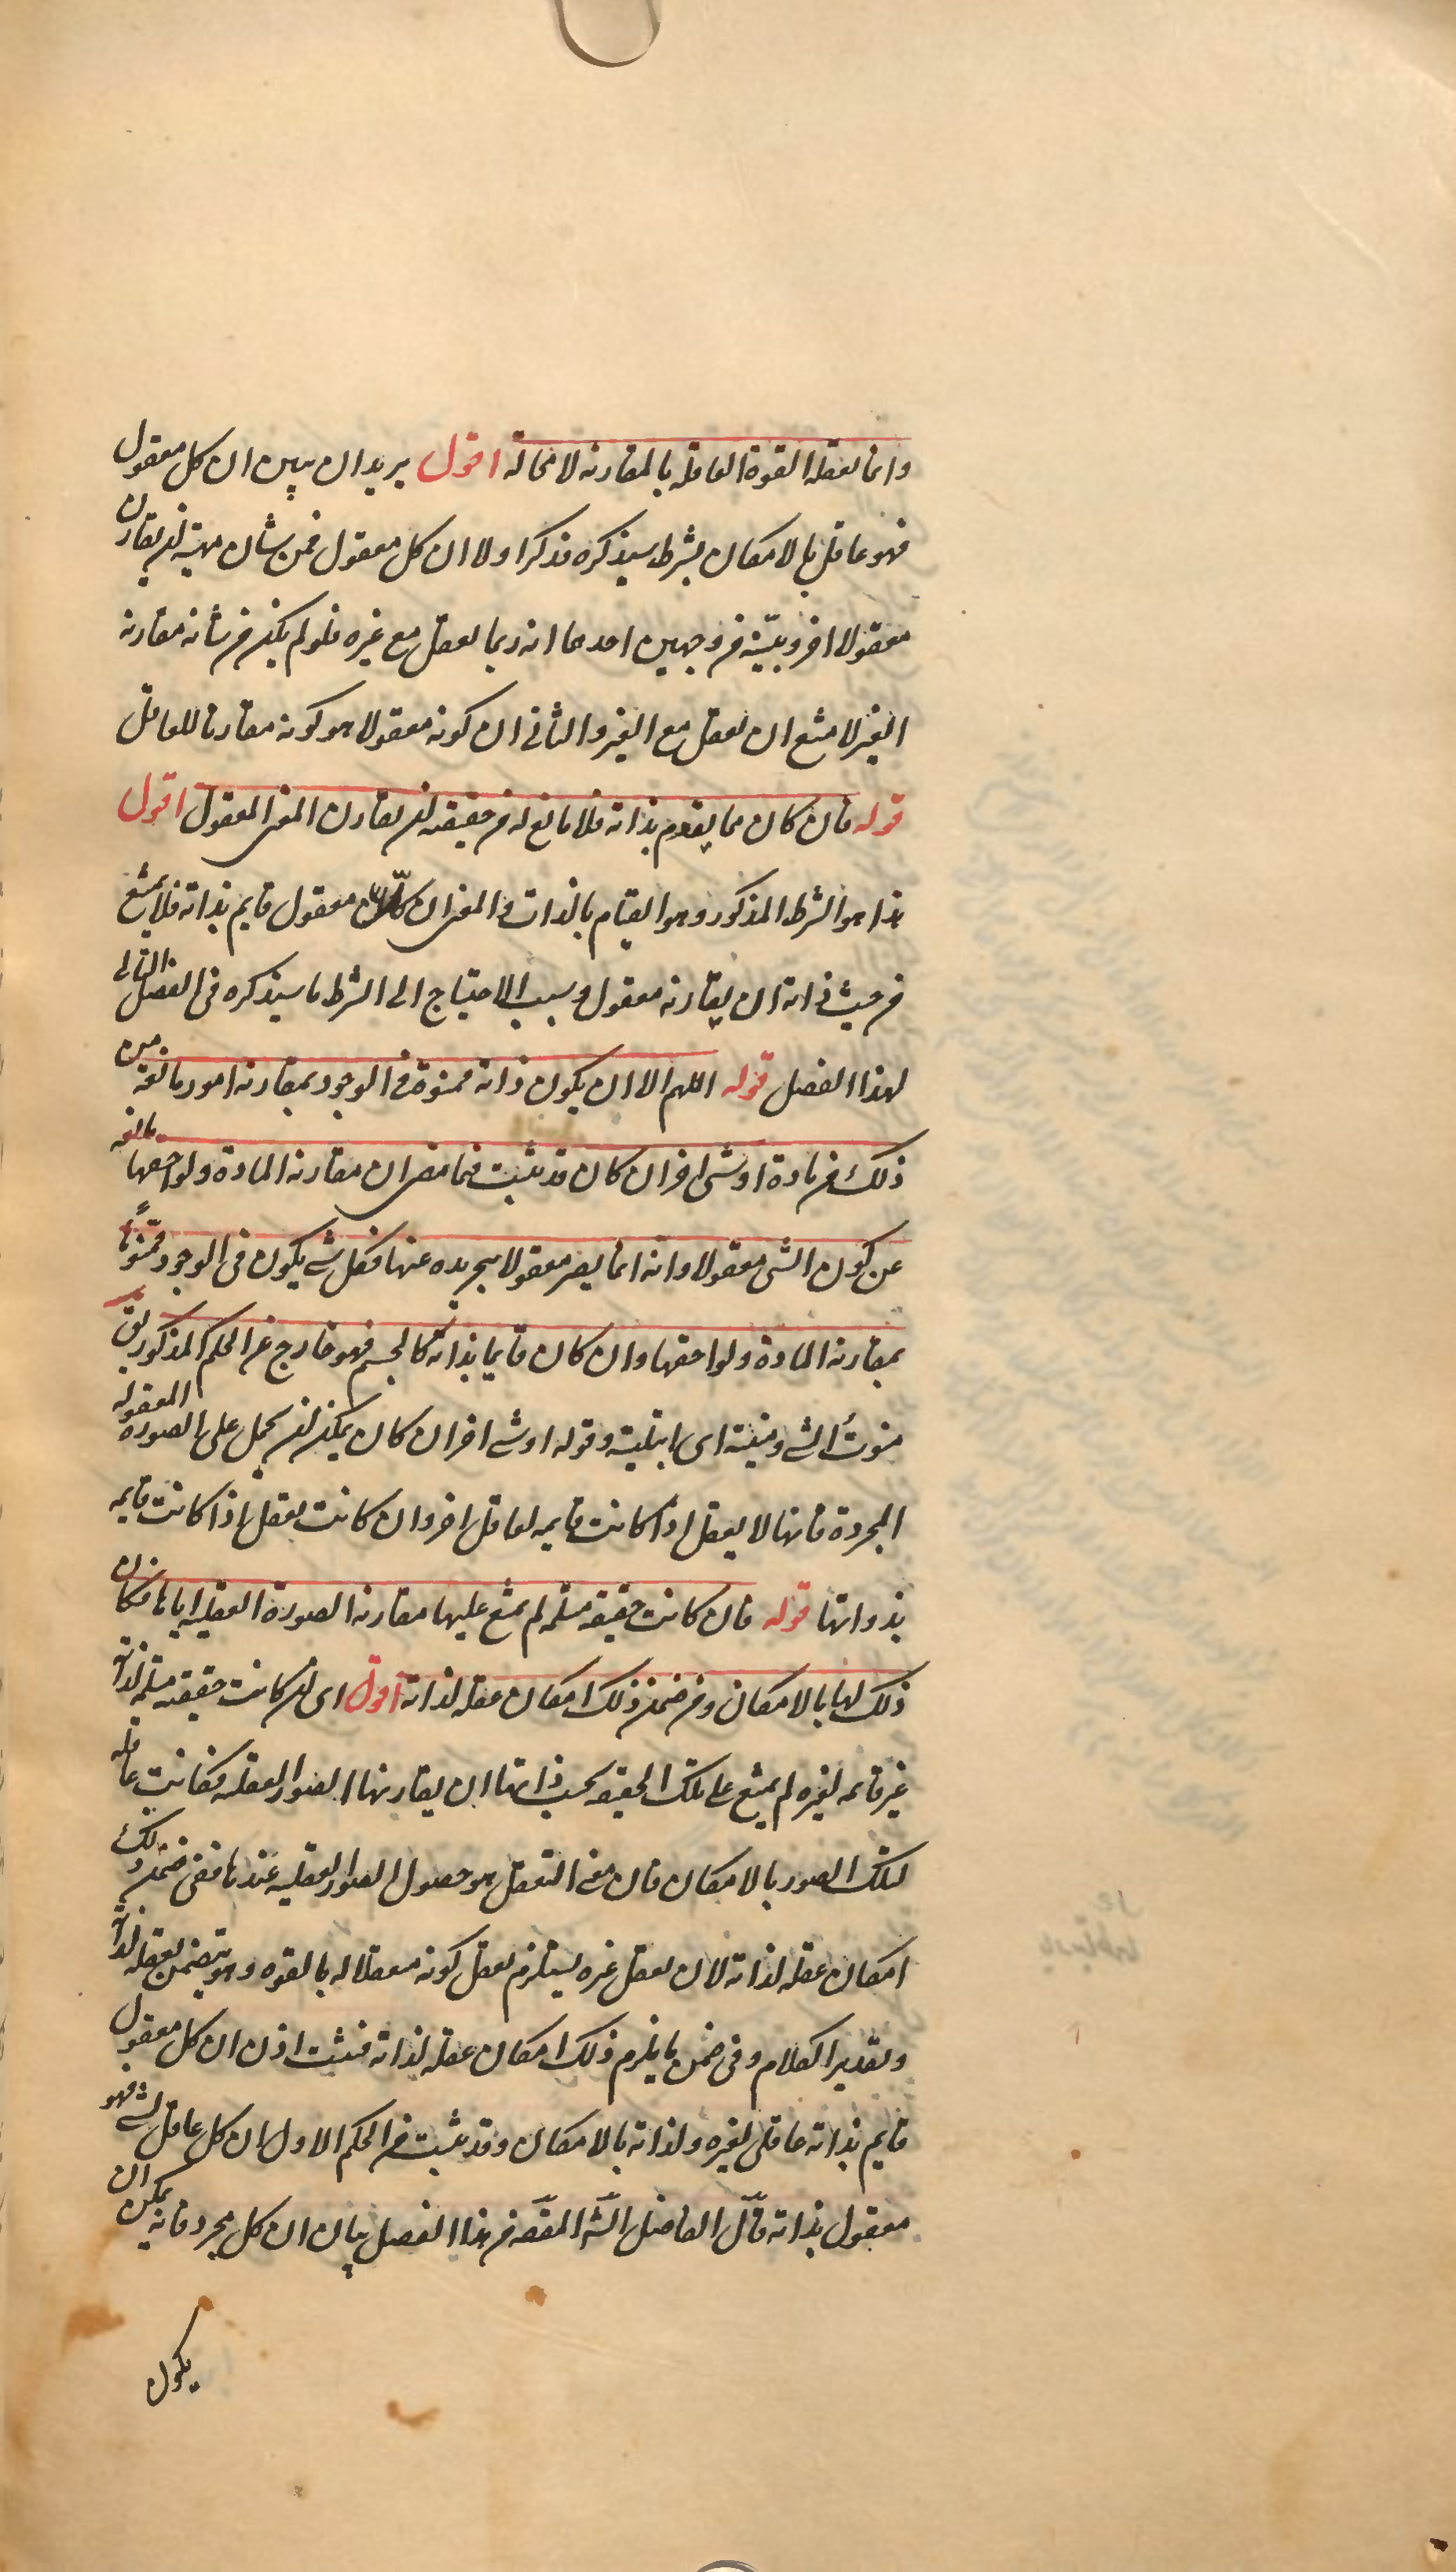 وانما تعقله القوة العاقلة بالمقارنة لا محالة اقول يريد ان يبين ان كل معقول
فهو عاقل بالامكان بشرط سيذكره فذكر اولا ان كل معقول فمن شان مهيته ان يقارن
معقولا اخر وبينه من وجهين احدهما انه ربما يعقل مع غيره فلو لم يكن من شانه مقارنة
الغير لامتنع ان يعقل مع الغير والثاني ان كونه معقولا هو كونه مقارنا للعاقل
قوله فان كان مما يقوم بذاته فلا مانع له من حقيقته ان يقارن المعنى المعقول اقول
هذا هو الشرط المذكور وهو القيام بالذات والمعنى ان كل معقول قايم بذاته فلا يمتنع
من حيث ذاته ان يقارنه معقول وسبب الاحتياج الى الشرط ما سيذكره فى الفصل التالى
لهذا الفصل قوله اللهم الا ان يكون ذاته ممنوة فى الوجود بمقارنة امور مانعة من
ذلك من مادة او شى اخر ان كان قد ثبت فيما مضى ان مقارنة المادة ولواحقها مانعه
عن كون الشى معقولا وانه انما يصير معقولا بتجريده عنها فكل شى يكون فى الوجود ممنوا
بمقارنة المادة ولواحقها وان كان قايما بذاته كالجسم فهو خارج عن الحكم المذكور يق
منوت الشى ومنيته اى ابتليته وقوله او شى اخر ان كان يمكن ان يحمل على الصورة المعقوله
المجردة فانها لا يعقل اذا كانت قايمه لعاقل اخر وان كانت تعقل اذا كانت قايمه
بذواتها قوله فان كانت حقيقته مسلمة لم يمتنع عليها مقارنة الصورة العقلية اياها فكان
ذلك لها بالامكان وفى ضمن ذلك امكان عقله لذاته اقول اى ان كانت حقيقته مسلمة لذاته
غير قائمه لغيره لم يمتنع على تلك الحقيقه بحسب ذاتها ان يقارنها الصور العقلية فكانت عاقله
لتلك الصور بالامكان فان معنى التعقل هو حصول الصور العقليه عندها ففى ضمن ذلك
امكان عقله لذاته لان تعقل غيره يستلزم تعقل كونه معقلا له بالقوه وهو يتضمن تعقله لذاته
وتقدير الكلام وفى ضمن ما يلزم ذلك امكان عقله لذاته فثبت اذن ان كل معقول
قايم بذاته عاقل لغيره ولذاته بالامكان وقد ثبت من الحكم الاول ان كل عاقل لشى فهو
معقول بذاته قال الفاضل الشه المقصه من هذا الفصل بيان ان كل مجرد فانه يمكن ان
يكون